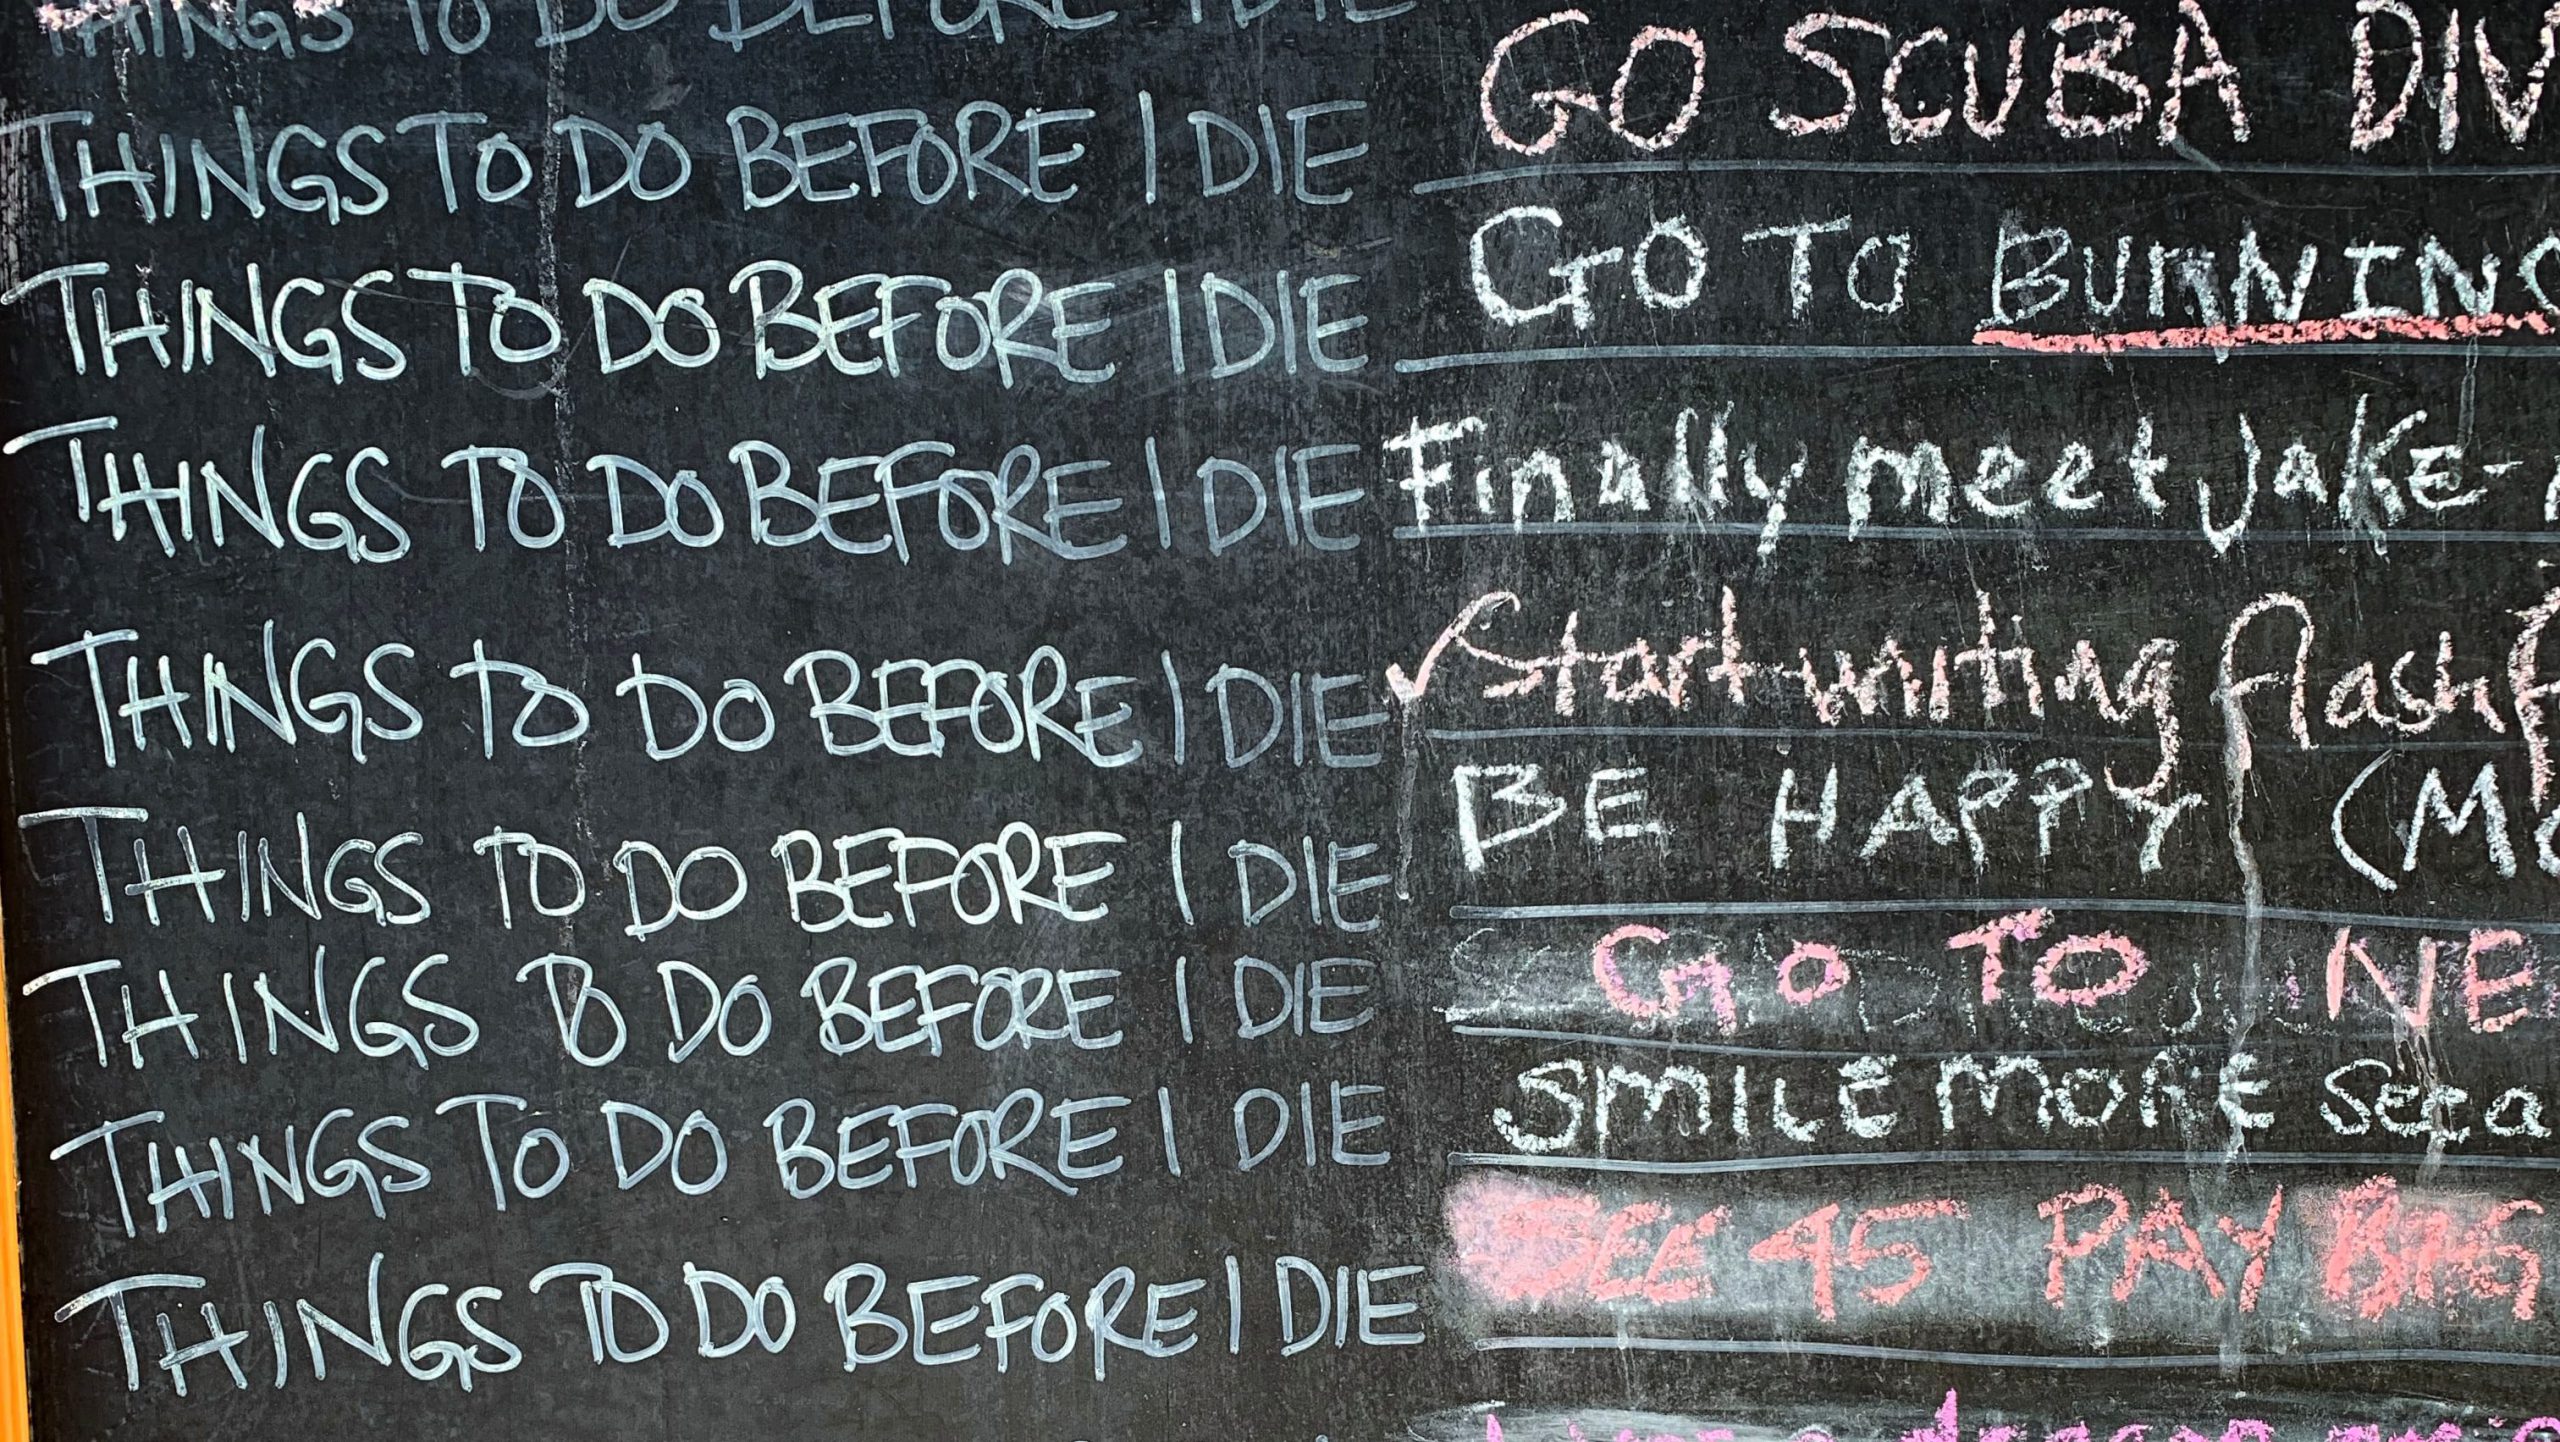 THINGS TO DO BEFORE I DIE GO SCUBA DIV
THINGS TO DO BEFORE I DIE GO TO BURNING
THINGS TO DO BEFORE I DIE Finally meet JaKE-
THINGS TO DO BEFORE I DIE Start writing flash f
THINGS TO DO BEFORE I DIE BE HAPPY (M
THINGS TO DO BEFORE I DIE GO TO NE
THINGS TO DO BEFORE I DIE SMILE MORE See a
THINGS TO DO BEFORE I DIE SEE 45 PAY BIG
THINGS TO DO BEFORE I DIE